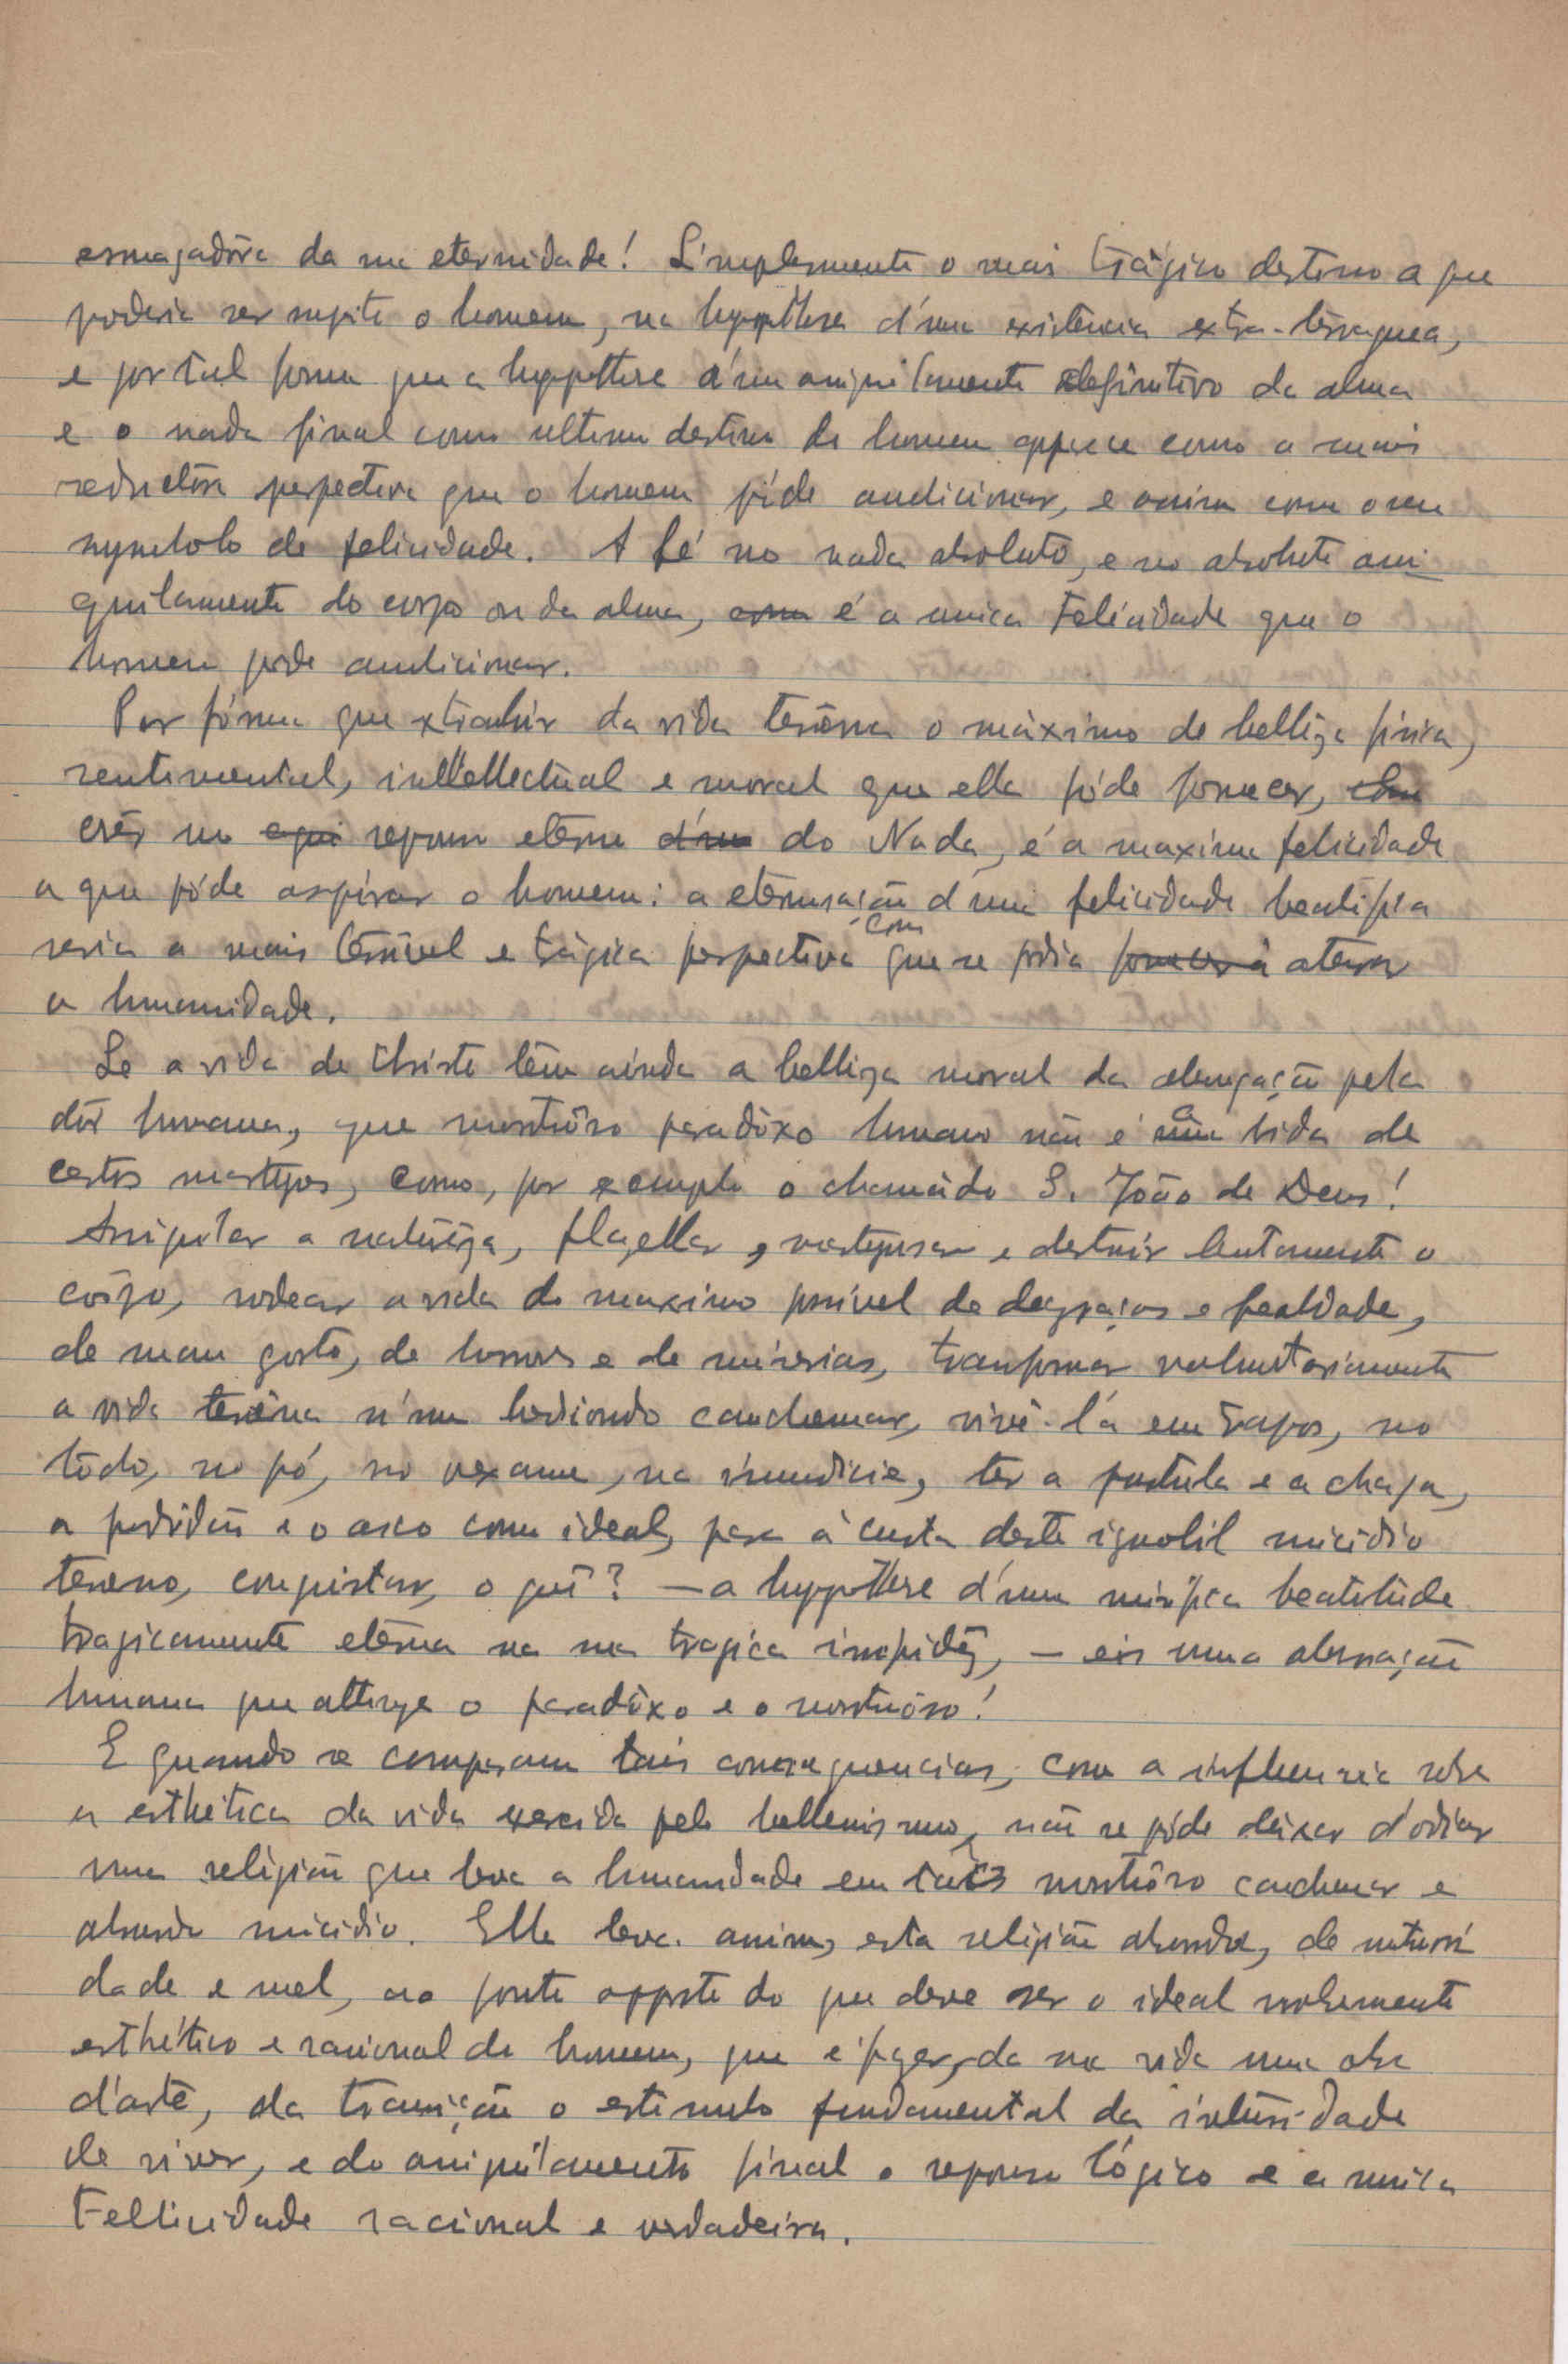 esmagadôra da sua eternidade! Simplesmente o mais trágico destino a que
poderia ser sugeito o homem, na hypothese d'uma existencia extra-terraquea,
e por tal forma que a hypothese d'um aniquilamento definitivo da alma
e o nada final como ultimo destino do homem apparece como a mais
seductôra perspectiva que o homem póde audicionar, e assim como o seu
symbolo de felicidade. A fé no nada absoluto, e no absoluto ani-
quilamento do corpo ou da alma, ~~como~~ é a unica Felicidade que o
homem pode audicionar.
Por fórma que extrahir da vida terrêna o máximo de bellêza fisica,
sentimental, intellectual e moral que ella póde fornecer,
crêr no ~~aqui~~ repouso eterno ~~d'um~~ do Nada, é a maxima felicidade
a que póde aspirar o homem: a eternisação d'uma felicidade beatifica
seria a mais terrivel e trágica perspectiva com que se podia ~~fornecer á~~ aterrar
a humanidade.
Se a vida de Christo têm ainda a bellêza moral da abnegação pela
dôr humana, que monstruôso paradôxo humano não é a vida de
certos martyres, como, por exemplo o chamado S. João de Deus!
Amputar a naturêza, flagellar, martyrisar e destruir lentamente o
côrpo, rodear a vida do maximo possivel de desgraças e fealdade,
de mau gosto, de horrores e de misérias, transformar voluntariamente
a vida terrêna n'um hediondo cauchemar, vivê-l'a em trapos, no
lôdo, no pó, no vexame, na imundicie, ter a pustula e a chaga,
a podridão e o asco como ideal, para á custa deste ignobil suicidio
terreno, conquistar, o quê? — a hypothese d'uma mirifica beatitude
tragicamente etérna na sua tragica insipidêz, — eis uma aberração
humana que attinge o paradôxo e o monstruôso!
E quando se comparam tais consequencias, com a influencia sobre
a esthética da vida exercida pelo hellenismo, não se póde deixar d'odiar
uma religião que leva a humanidade em tais monstruôso cauchemar e
absurdo suicidio. Ella leva assim, esta religião absurda, de
dade e mel, ao ponto opposto do que deve ser o ideal nobremente
esthético e racional do homem, que é fazer, da sua vida uma obra
d'arte, da transição o estimulo fundamental da intensidade
de viver, e do aniquilamento final o repouso lógico e a unica
Fellicidade racional e verdadeira.